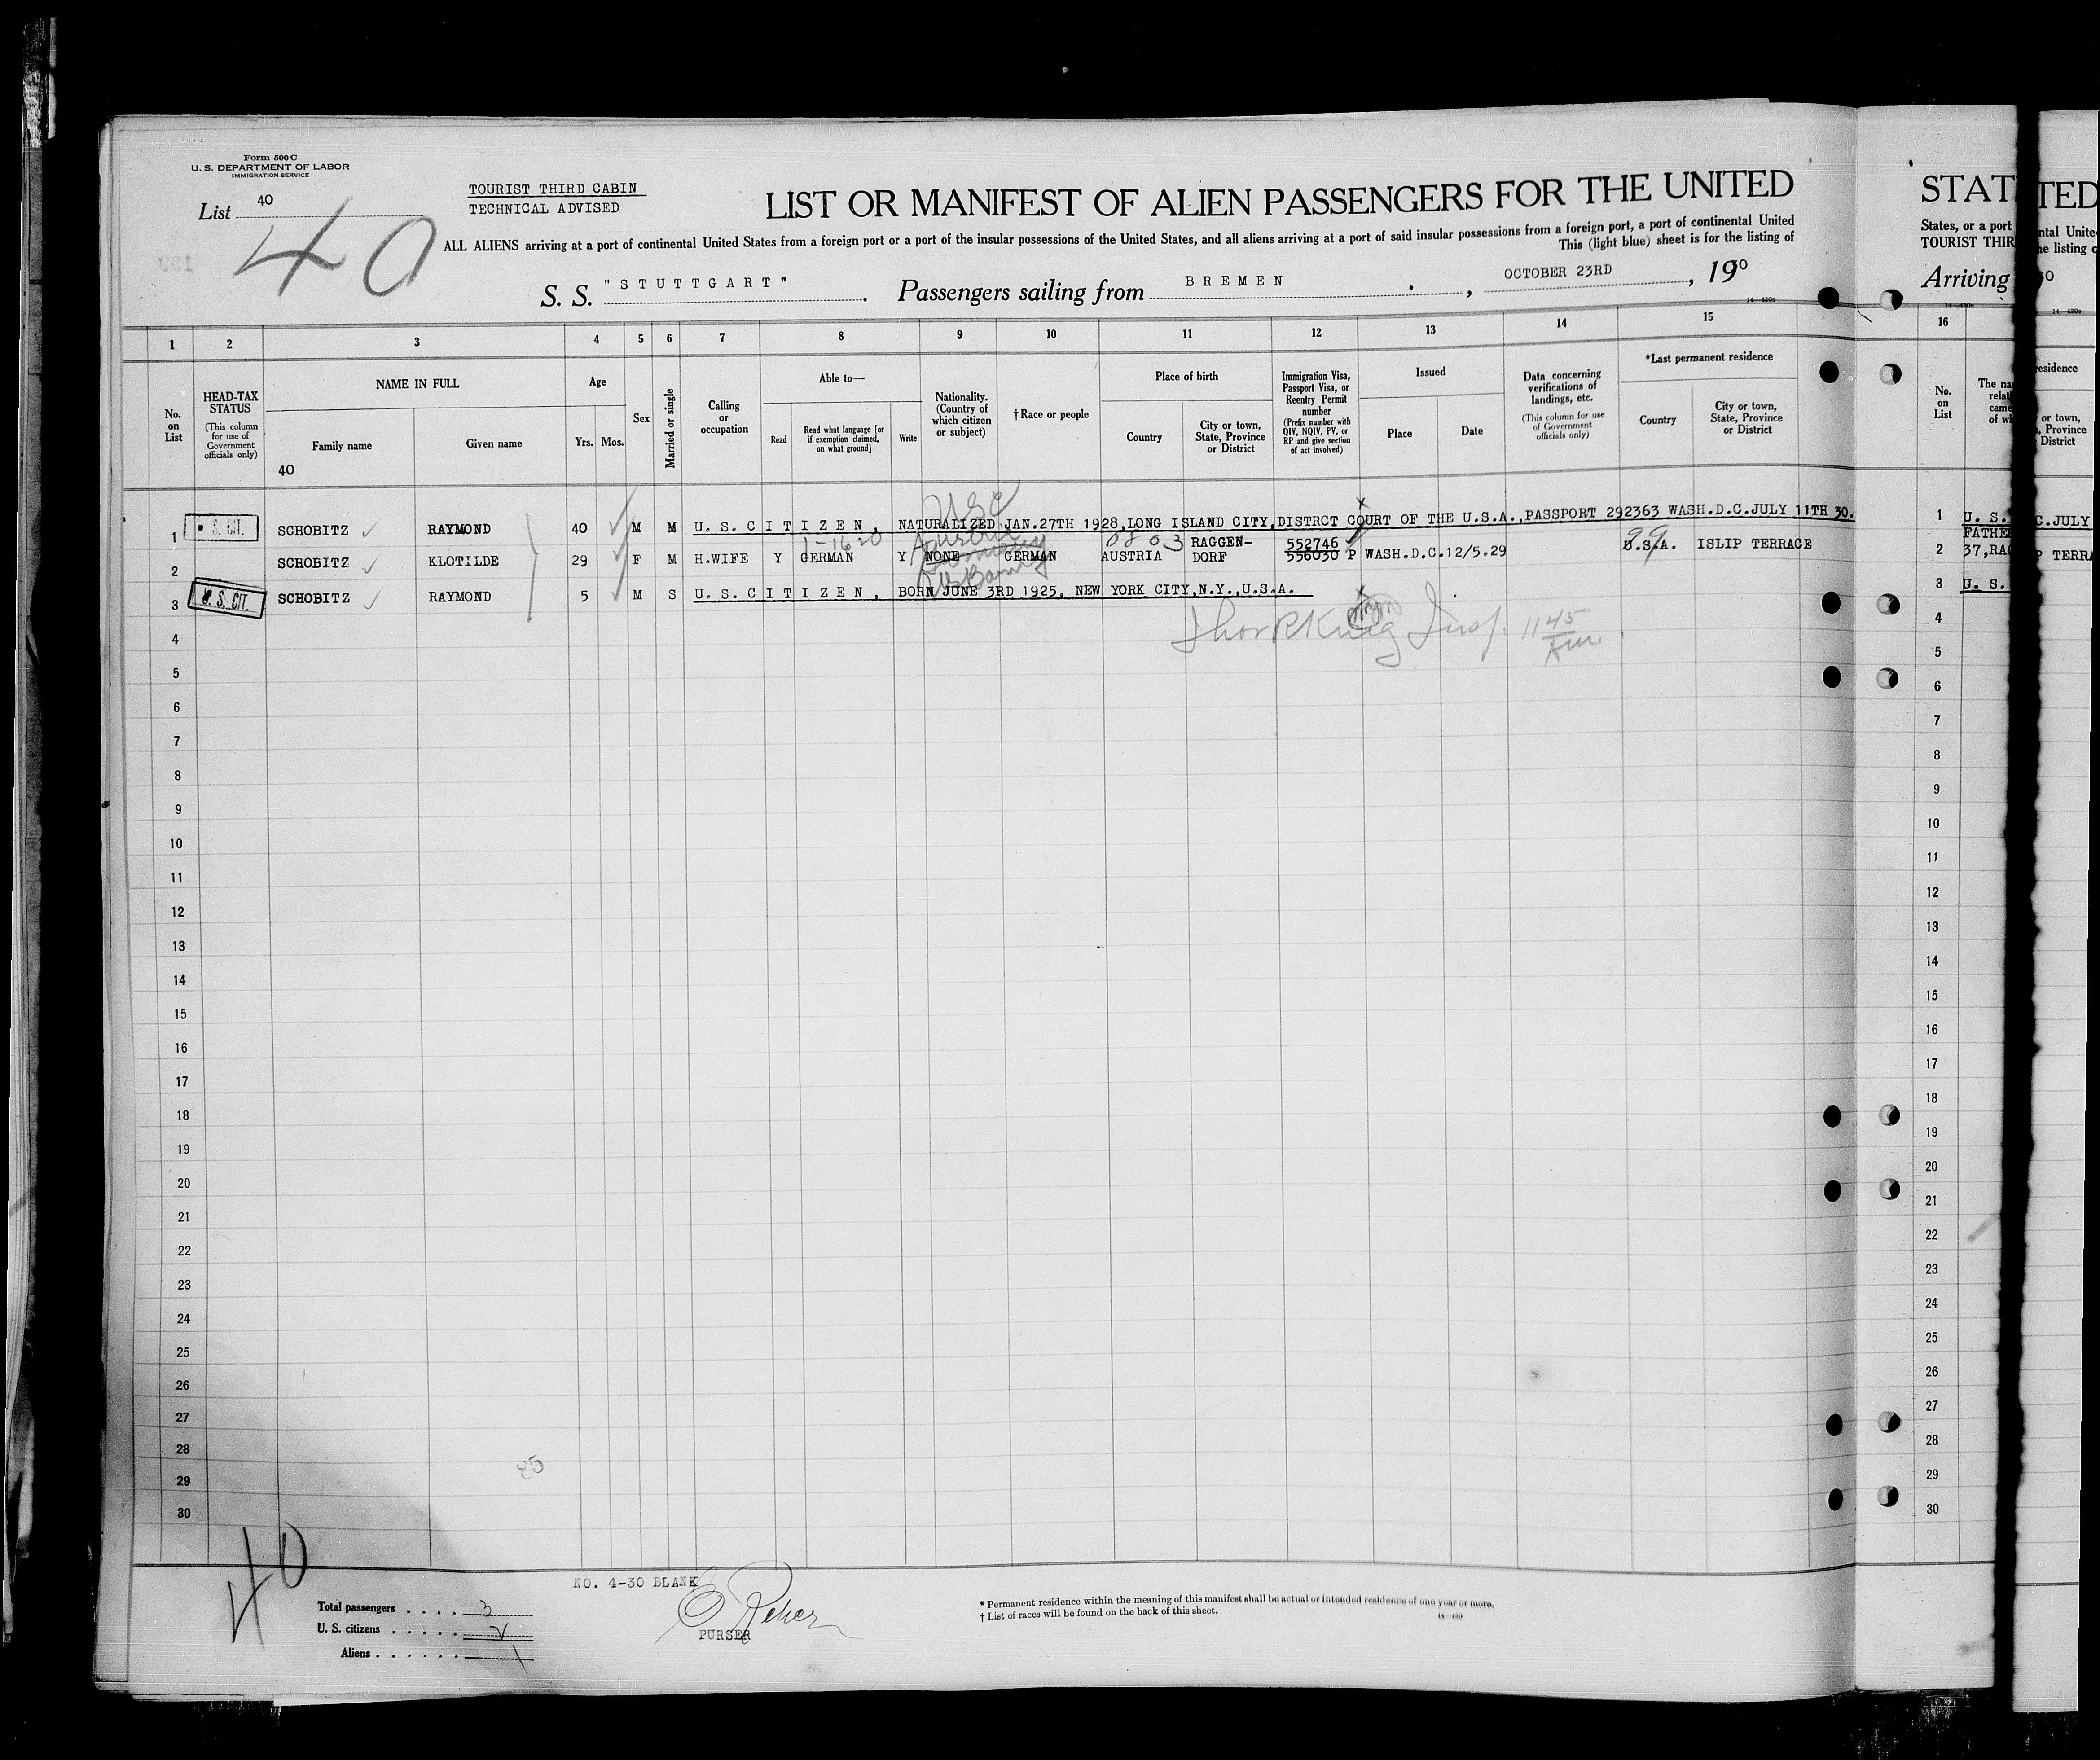 Form 500 C
U. S. DEPARTMENT OF LABOR
IMMIGRATION SERVICE
List 40
40
TOURIST THIRD CABIN
TECHNICAL ADVISED
LIST OR MANIFEST OF ALIEN PASSENGERS FOR THE UNITED
ALL ALIENS arriving at a port of continental United States from a foreign port or a port of the insular possessions of the United States, and all aliens arriving at a port of said insular possessions from a foreign port, a port of continental United
This (light blue) sheet is for the listing of
S. S. "STUTTGART". Passengers sailing from BREMEN, OCTOBER 23RD, 1930
1 2 3 4 5 6 7 8 9 10 11 12 13 14 15
No. on List
HEAD-TAX STATUS (This column for use of Government officials only)
NAME IN FULL
Family name
Given name
40
Age
Yrs. Mos.
Sex
Married or single
Calling or occupation
Able to—
Read
Read what language [or if exemption claimed, on what ground]
Write
Nationality. (Country of which citizen or subject)
†Race or people
Place of birth
Country
City or town, State, Province or District
Immigration Visa, Passport Visa, or Reentry Permit number (Prefix number with QIV, NQIV, PV, or RP and give section of act involved)
Issued
Place
Date
Data concerning verifications of landings, etc. (This column for use of Government officials only)
*Last permanent residence
Country
City or town, State, Province or District
USC
1 S. CIT. SCHOBITZ RAYMOND 40 M M U.S.CITIZEN, NATURALIZED JAN.27TH 1928,LONG ISLAND CITY,DISTRCT COURT OF THE U.S.A.,PASSPORT 292363 WASH.D.C.JULY 11TH 30.
2 SCHOBITZ KLOTILDE 29 F M H.WIFE Y GERMAN Y NONE GERMAN AUSTRIA RAGGEN-DORF 552746 556030 P WASH.D.C.12/5.29 U.S.A. ISLIP TERRACE
99
3 U. S. CIT. SCHOBITZ RAYMOND 5 M S U.S.CITIZEN, BORN JUNE 3RD 1925, NEW YORK CITY,N.Y.,U.S.A.
4
5
6
7
8
9
10
11
12
13
14
15
16
17
18
19
20
21
22
23
24
25
26
27
28
29
30
40
NO. 4-30 BLANK
Total passengers .... 3
U. S. citizens ..... 2
Aliens ...... 1
PURSER
* Permanent residence within the meaning of this manifest shall be actual or intended residence of one year or more.
† List of races will be found on the back of this sheet.
STAT
States, or a port
TOURIST THIR
Arriving
16
No. on List
1 U. S.
FATHE
2 37,RA
3 U. S.
4
5
6
7
8
9
10
11
12
13
14
15
16
17
18
19
20
21
22
23
24
25
26
27
28
29
30
TED
ntal Unite
he listing o
30
esidence
or town,
, Province
District
C.JULY
P TERRA